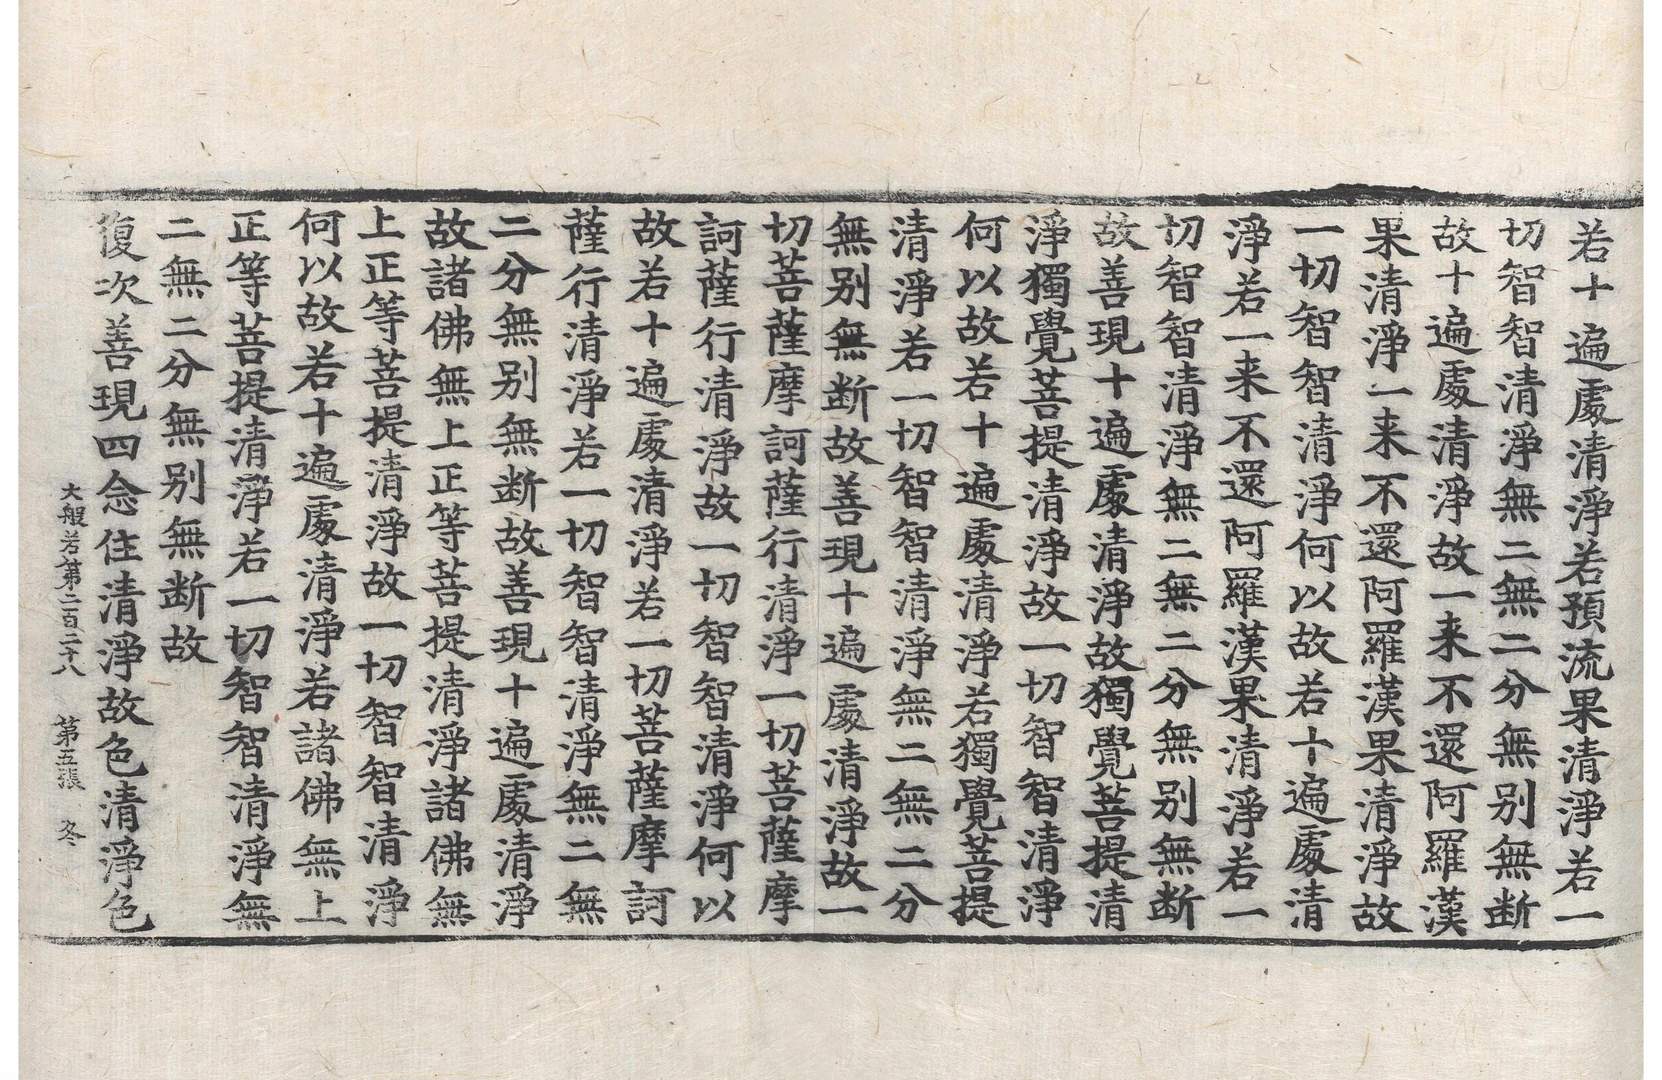 若十遍處清淨若預流果清淨若一
切智智清淨無二無二分無別無断
故十遍處清淨故一来不還阿羅漢
果清淨一来不還阿羅漢果清淨故
一切智智清淨何以故若十遍處清
淨若一来不還阿羅漢果清淨若一
切智智清淨無二無二分無別無断
故善現十遍處清淨故獨覺菩提清
淨獨覺菩提清淨故一切智智清淨
何以故若十遍處清淨若獨覺菩提
清淨若一切智智清淨無二無二分
無別無断故善現十遍處清淨故一
切菩薩摩訶薩行清淨一切菩薩摩
訶薩行清淨故一切智智清淨何以
故若十遍處清淨若一切菩薩摩訶
薩行清淨若一切智智清淨無二無
二分無別無断故善現十遍處清淨
故諸佛無上正等菩提清淨諸佛無
上正等菩提清淨故一切智智清淨
何以故若十遍處清淨若諸佛無上
正等菩提清淨若一切智智清淨無
二無二分無別無断故
復次善現四念住清淨故色清淨色
大般若第二百二十八 第五張 冬